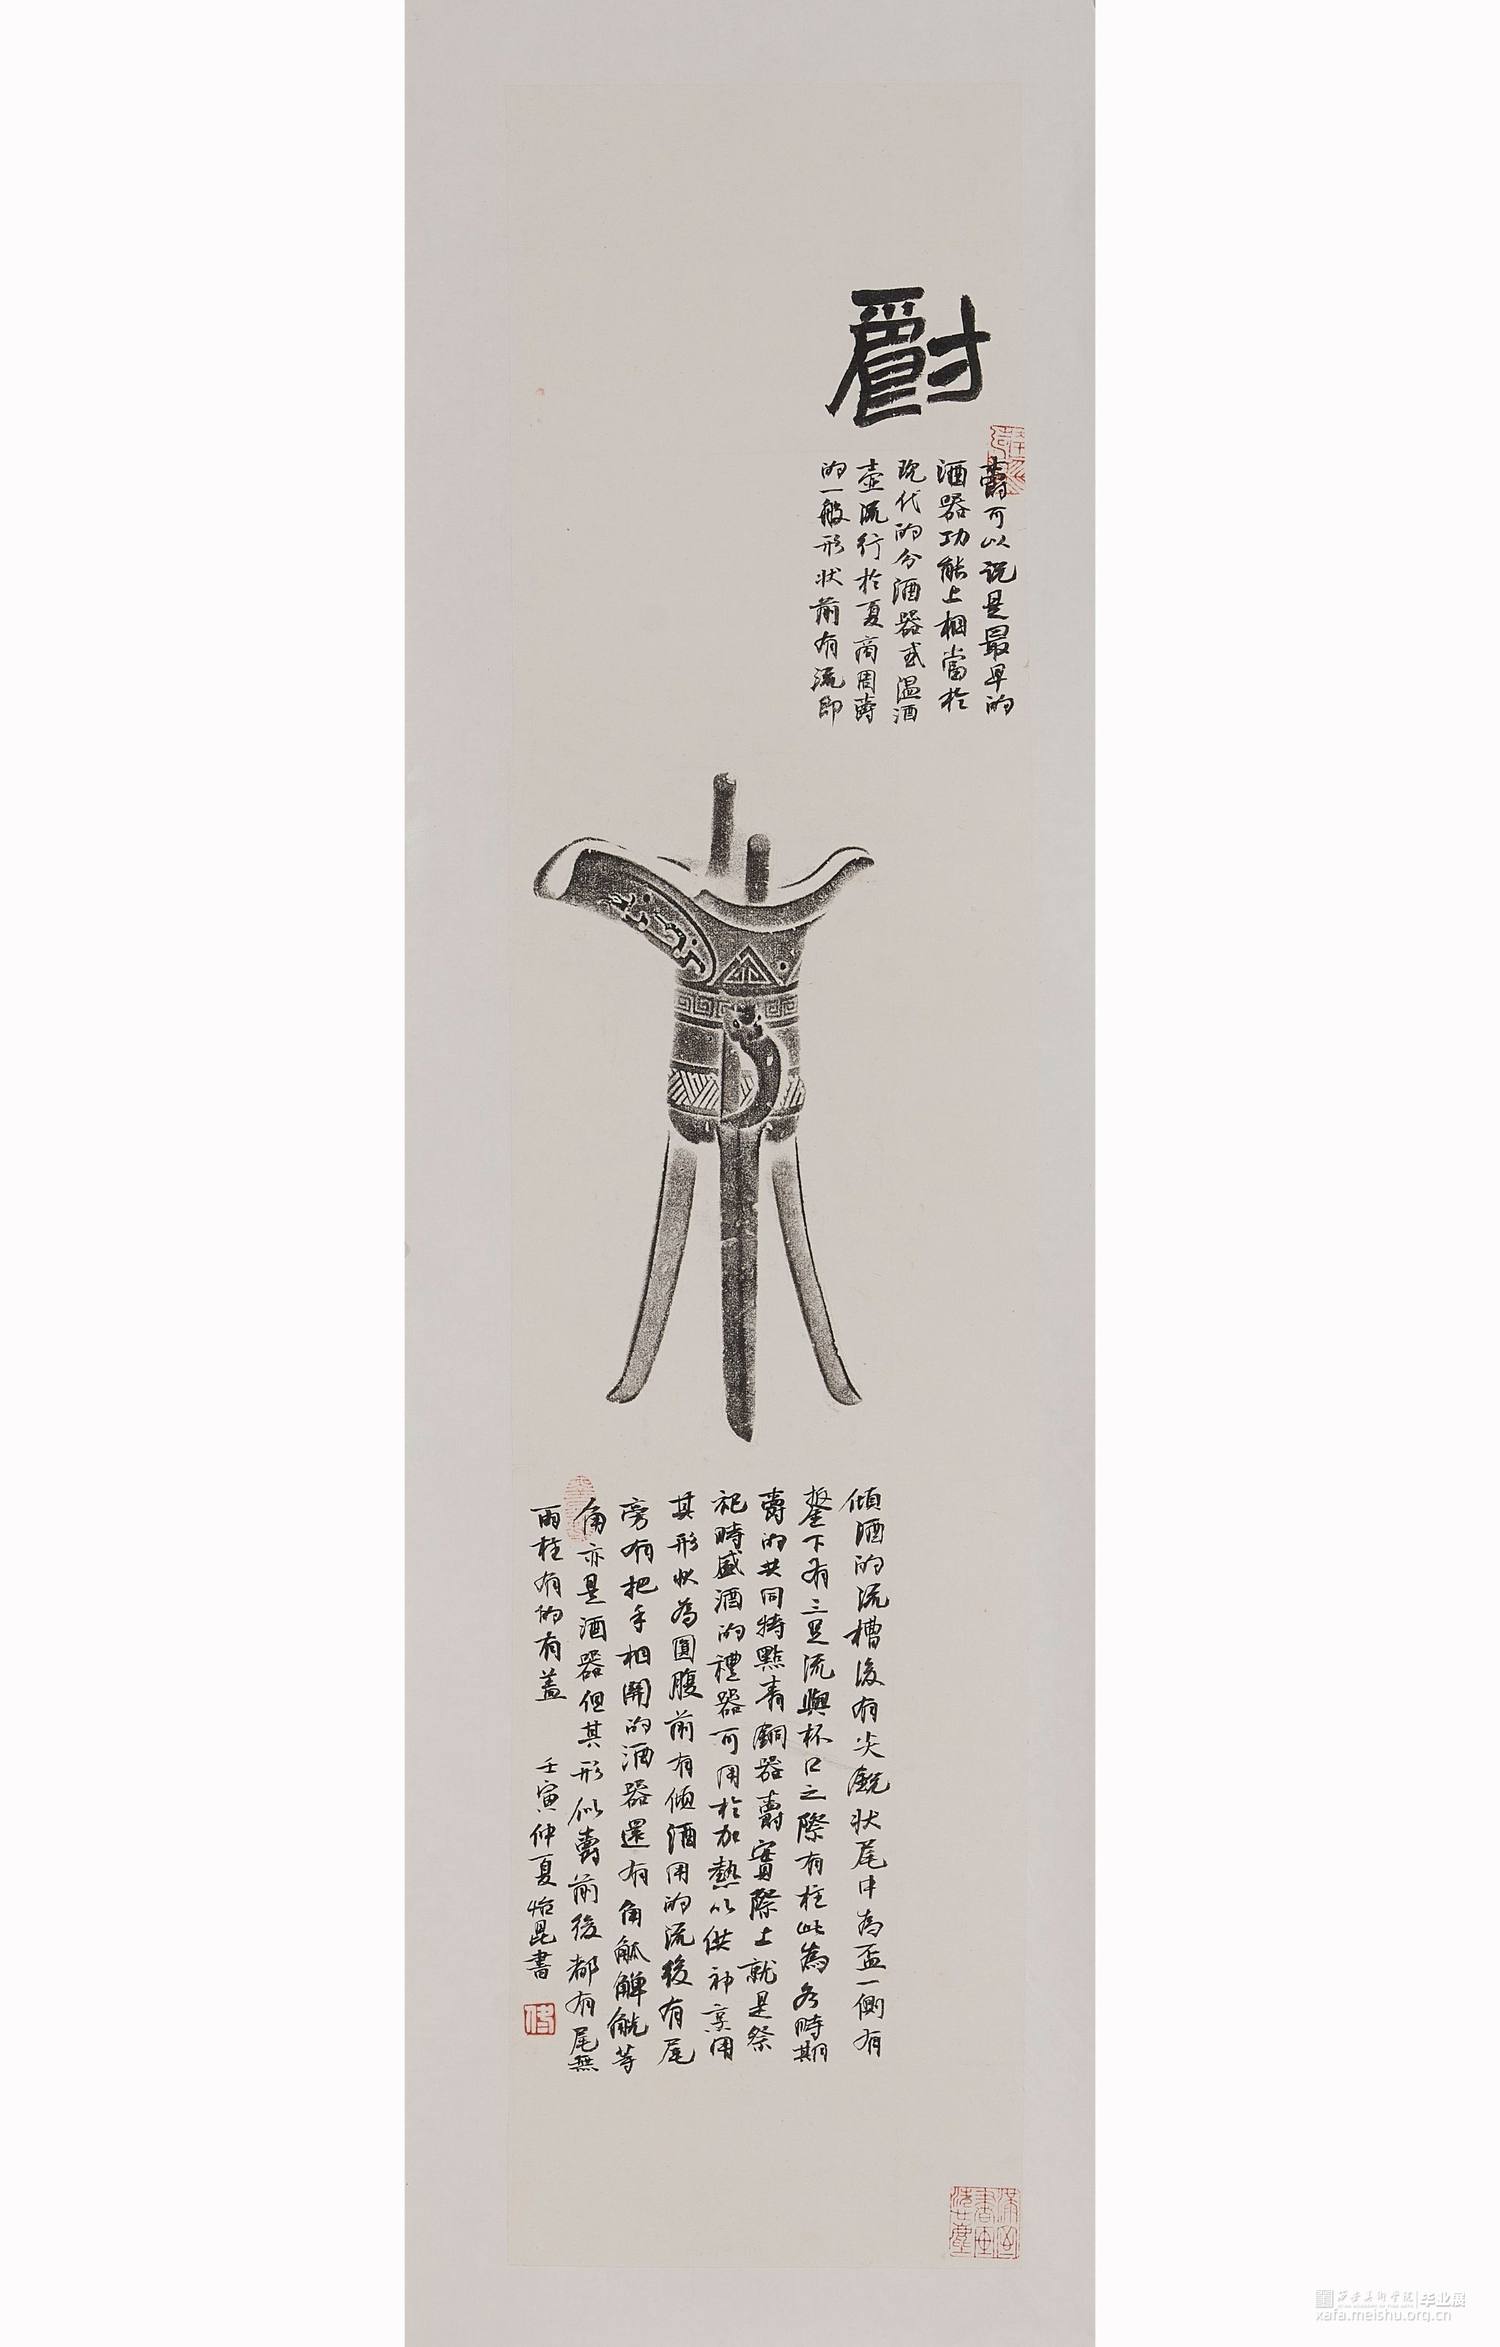 爵
爵可以说是最早的
酒器功能上相當於
现代的分酒器或温酒
壶流行於夏商周爵
的一般形状前有流即
傾酒的流槽後有尖銳状尾中為盃一側有
鋬下有三足流與杯口之際有柱此為各時期
爵的共同特點青銅器爵實際上就是祭
祀時盛酒的禮器可用於加熱以供神享用
其形狀為圓腹前有傾酒用的流後有尾
旁有把手相關的酒器還有角觚觶觥等
角亦是酒器但其形似爵前後都有尾無
兩柱有的有蓋
壬寅仲夏怡昆書
西安美術学院 毕业展
xafa.meishu.org.cn